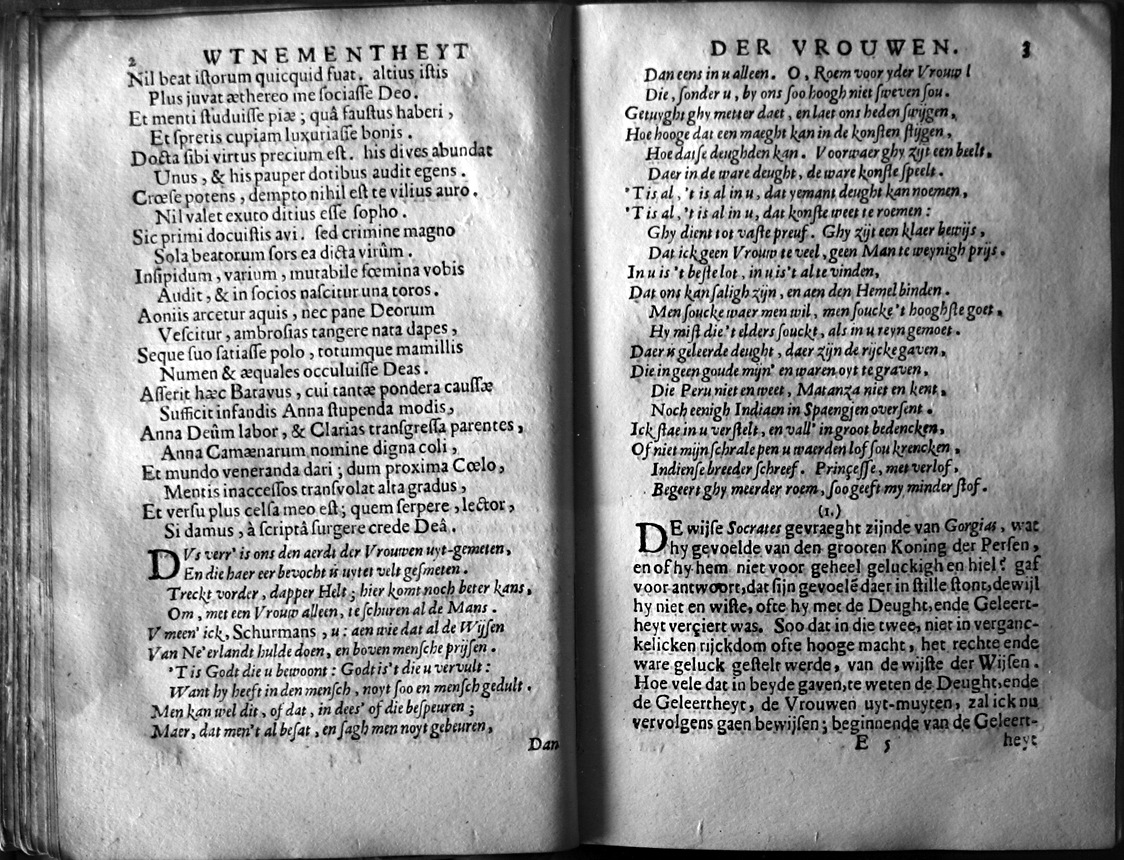 2 WTNEMENTHEYT
Nil beat iſtorum quicquid fuat. altius iſtis
Plus juvat æthereo me ſociaſſe Deo.
Et menti ſtuduiſſe piæ; quâ fauſtus haberi,
Et ſpretis cupiam luxuriaſſe bonis.
Docta ſibi virtus precium eſt. his dives abundat
Unus, & his pauper dotibus audit egens.
Crœſe potens, dempto nihil eſt te vilius auro.
Nil valet exuto ditius eſſe ſopho.
Sic primi docuiſtis avi. ſed crimine magno
Sola beatorum ſors ea dicta virûm.
Inſipidum, varium, mutabile fœmina vobis
Audit, & in ſocios naſcitur una toros.
Aoniis arcetur aquis, nec pane Deorum
Veſcitur, ambroſias tangere nata dapes,
Seque ſuo ſatiaſſe polo, totumque mamillis
Numen & æquales occuluiſſe Deas.
Aſſerit hæc Batavus, cui tantæ pondera cauſſæ
Sufficit infandis Anna ſtupenda modis,
Anna Deûm labor, & Clarias tranſgreſſa parentes,
Anna Camænarum nomine digna coli,
Et mundo veneranda dari; dum proxima Cœlo,
Mentis inacceſſos tranſvolat alta gradus,
Et verſu plus celſa meo eſt; quem ſerpere, lector,
Si damus, à ſcriptâ ſurgere crede Deâ.
DVs verr' is ons den aerdt der Vrouwen uyt-gemeten,
En die haer eer bevocht is uyt et velt geſmeten.
Treckt vorder, dapper Helt; hier komt noch beter kans,
Om, met een Vrouw alleen, te ſchuren al de Mans.
V meen' ick, Schurmans, u: aen wie dat al de Wijſen
Van Ne'erlandt hulde doen, en boven menſche prijſen.
'T is Godt die u bewoont: Godt is't die u vervult:
Want hy heeft in den menſch, noyt ſoo en menſch gedult.
Men kan wel dit, of dat, in dees' of die beſpeuren;
Maer, dat men't al beſat, en ſagh men noyt gebeuren,
Dan
DER VROUWEN. 3
Dan eens in u alleen. O, Roem voor yder Vrouw!
Die, ſonder u, by ons ſoo hoogh niet ſweven ſou.
Getuyght ghy metter daet, en laet ons heden ſwijgen,
Hoe hooge dat een maeght kan in de konſten ſtijgen,
Hoe datſe deughden kan. Voorwaer ghy zijt een beelt,
Daer in de ware deught, de ware konſte ſpeelt.
'T is al, 't is al in u, dat yemant deught kan noemen,
'T is al, 't is al in u, dat konſte weet te roemen:
Ghy dient tot vaſte preuf. Ghy zijt een klaer bewijs,
Dat ick geen Vrouw te veel, geen Man te weynigh prijs.
In u is 't beſte lot, in u is't al te vinden,
Dat ons kan ſaligh zijn, en aen den Hemel binden.
Men ſoucke waer men wil, men ſoucke 't hooghſte goet,
Hy miſt die 't elders ſouckt, als in u reyn gemoet.
Daer is geleerde deught, daer zijn de rijcke gaven,
Die in geen goude mijn' en waren oyt te graven,
Die Peru niet en weet, Matanza niet en kent,
Noch eenigh Indiaen in Spaengjen overſent.
Ick ſtae in u verſtelt, en vall' in groot bedencken,
Of niet mijn ſchrale pen u waerden lof ſou krencken,
Indienſe breeder ſchreef. Prinçeſſe, met verlof,
Begeert ghy meerder roem, ſoo geeft my minder ſtof.
(1.)
DE wijſe Socrates gevraeght zijnde van Gorgias, wat
hy gevoelde van den grooten Koning der Perſen,
en of hy hem niet voor geheel geluckigh en hiel? gaf
voor antwoort, dat ſijn gevoelē daer in ſtille ſtont, dewijl
hy niet en wiſte, ofte hy met de Deught, ende Geleert-
heyt verçiert was. Soo dat in die twee, niet in verganc-
kelicken rijckdom ofte hooge macht, het rechte ende
ware geluck geſtelt werde, van de wijſte der Wijſen.
Hoe vele dat in beyde gaven, te weten de Deught, ende
de Geleertheyt, de Vrouwen uyt-muyten, zal ick nu
vervolgens gaen bewijſen; beginnende van de Geleert-
E 5 heyt